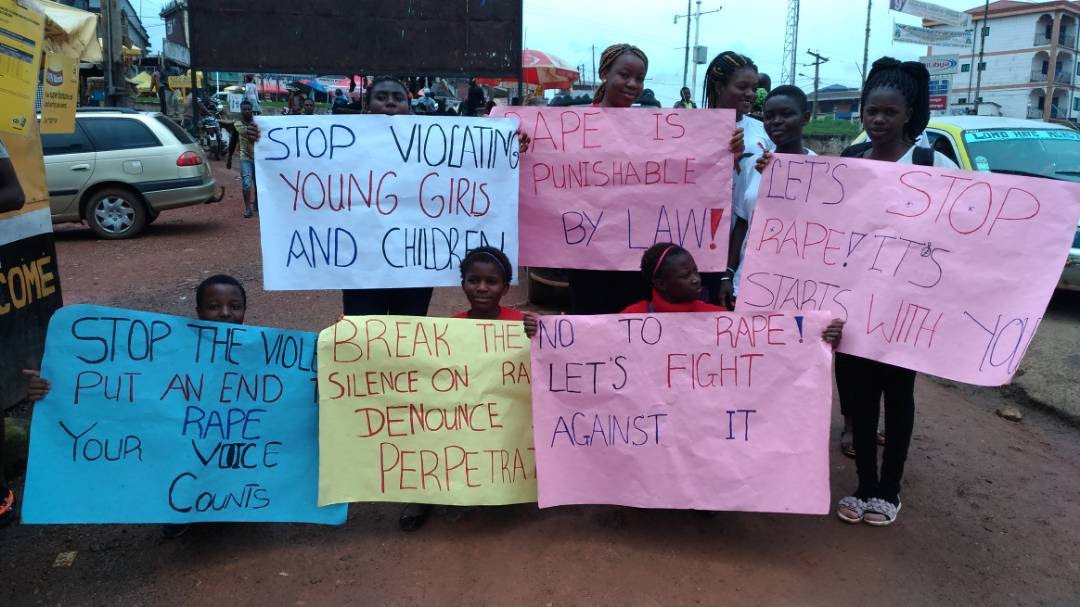 STOP VIOLATING
YOUNG GIRLS
AND CHILDREN
RAPE IS
PUNISHABLE
BY LAW!
LET'S STOP
RAPE! IT'S
STARTS WITH YOU
STOP THE VIOL
PUT AN END
YOUR RAPE
VOICE
COUNTS
BREAK THE
SILENCE ON RA
DENOUNCE
PERPETRA
NO TO RAPE!
LET'S FIGHT
AGAINST IT
COME